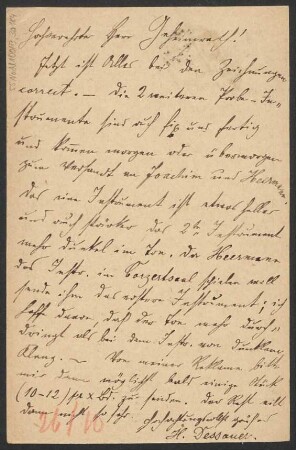 Hochverehrter Herr Geheimrath!
Jetzt ist Alles bei den Zeichnungen
correct. — Die 2 weiteren Probe-In-
strumente sind auch fix und fertig
und kommen morgen oder übermorgen
zum Versandt an Joachim und Heermann.
Das eine Instrument ist etwas heller
und auch stärker das 2te Instrument
mehr dunkel im Ton. Da Heermann
das Instr. im Conzertsaal spielen will
sende ihm das erstere Instrument; ich
hoffe davon daß der Ton mehr durch-
dringt als bei dem Instr. von dunklem
Klang. — Von meiner Reklame bitte
mir dann möglichst bald einige Stück
(10–12) pr. x Bd. zu senden. Der Rest eilt
dann nicht so sehr. Hochachtungsvollst grüßt
H. Dessauer.
26/10